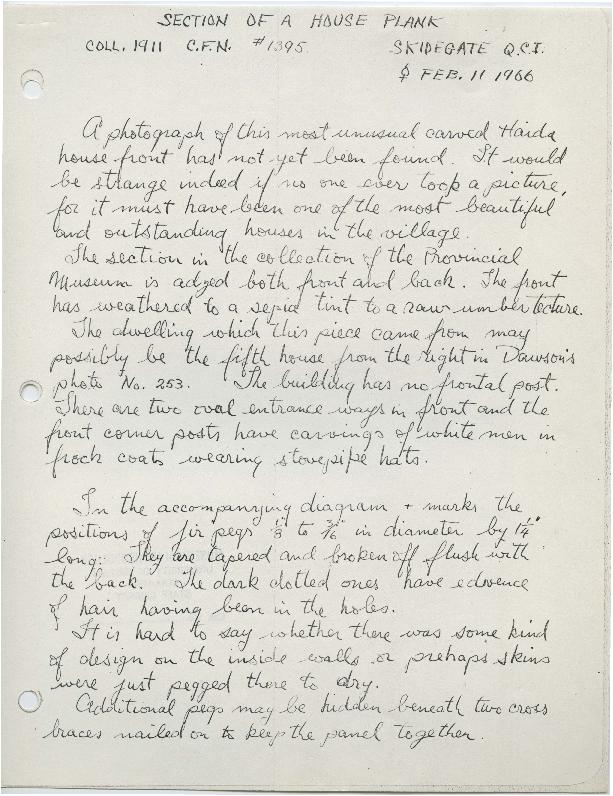 SECTION OF A HOUSE PLANK
COLL. 1911 C.F.N. #1395. SKIDEGATE Q.C.I.
FEB. 11 1966
A photograph of this most unusual carved Haida
house front has not yet been found. It would
be strange indeed if no one ever toop a picture,
for it must have been one of the most beautiful
and outstanding houses in the village.
The section in the collection of the Provincial
Museum is adzed both front and back. The front
has weathered to a sepia tint to a raw umber tecture.
The dwelling which this piece came from may
possibly be the fifth house from the right in Dawson's
photo No. 253. The building has no frontal post.
There are two oval entrance ways in front and the
front corner posts have carvings of white men in
frock coats wearing stovepipe hats.
In the accompanying diagram + marks the
positions of fir pegs 1/8" to 3/16" in diameter by 1 1/4"
long. They are tapered and broken off flush with
the back. The dark dotted ones have edivence
of hair having been in the holes.
It is hard to say whether there was some kind
of design on the inside walls or prehaps skins
were just pegged there to dry.
Additional pegs may be hidden beneath two cross
braces nailed on to keep the panel together.